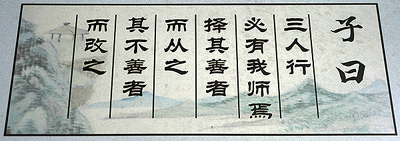 子曰
三人行
必有我师焉
择其善者
而从之
其不善者
而改之